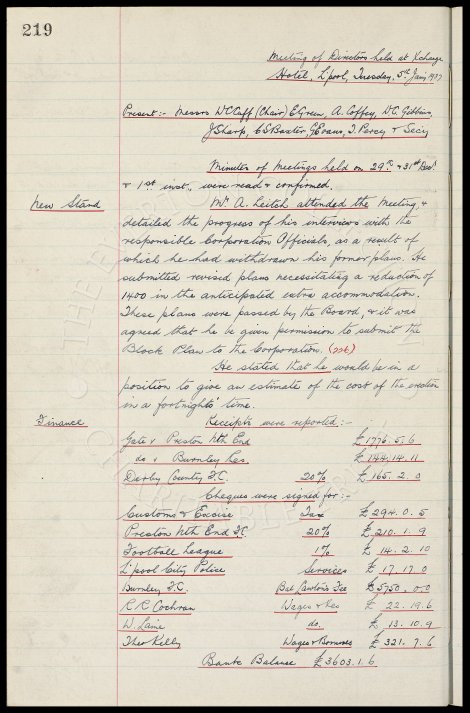 219
Meeting of Directors held at Xchange
Hotel, L'pool, Tuesday, 5th Jany 1937
Present:- Messrs W C Cuff (Chair) E Green, A. Coffey, W. C. Gibbins,
J Sharp, C S Baxter, G Evans, T. Percy & Secy
Minutes of Meetings held on 29th & 31st Decr
& 1st inst., were read & confirmed.
New Stand
Mr A. Leitch attended the Meeting &
detailed the progress of his interviews with the
responsible Corporation Officials, as a result of
which he had withdrawn his former plans. He
submitted revised plans necessitating a reduction of
1400 in the anticipated extra accommodation.
These plans were passed by the Board, & it was
agreed that he be given permission to submit the
Block Plan to the Corporation. (226)
He stated that he would be in a
position to give an estimate of the cost of the erection
in a fortnights' time.
Finance
Receipts were reported:-
Gate v Preston Nth End £1776.5.6
do v Burnley Res. £144.14.11
Derby County F.C. 20% £165.2.0
Cheques were signed for:-
Customs & Excise Tax £294.0.5
Preston Nth End F.C. 20% £210.1.9
Football League 1% £14.2.10
L'pool City Police Services £17.17.0
Burnley F.C. Bal Lawton's Fee £5750.0.0
R R Cochran Wages & Xes £22.19.6
W. Laine do. £13.10.9
Theo Kelly Wages & Bonuses £321.7.6
Bank Balance £3603.1.6